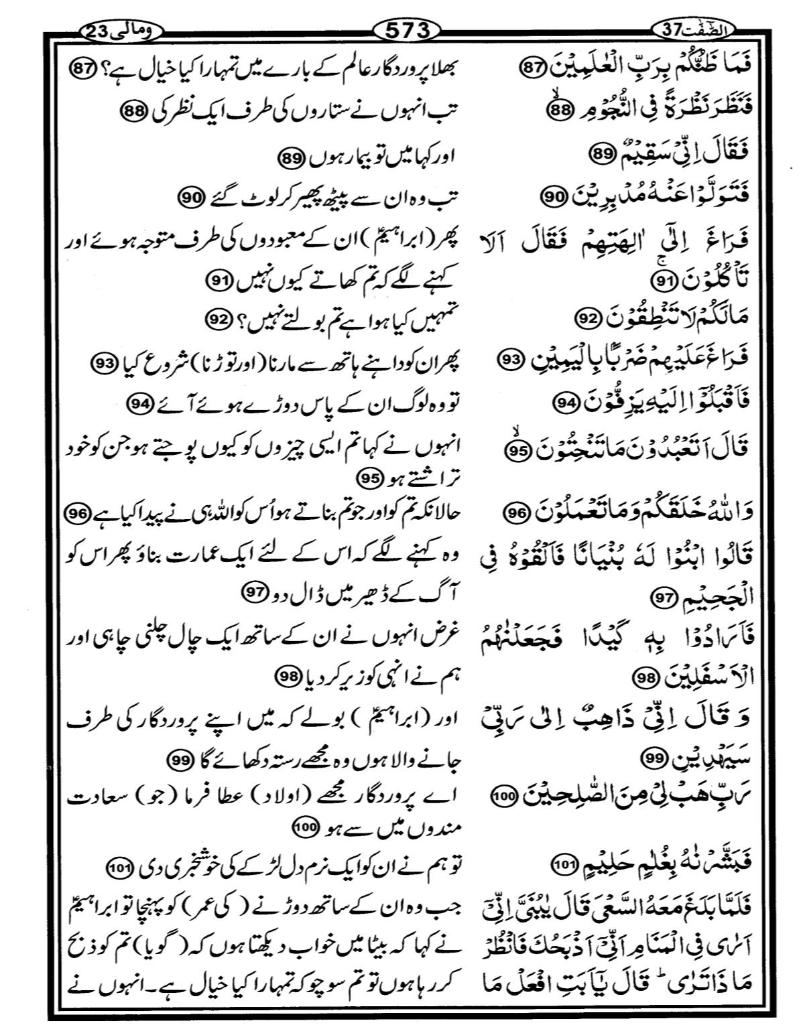 الصّٰٓفّٰت37 573 ومالی23
فَمَا ظَنُّكُمْ بِرَبِّ الْعٰلَمِيْنَ 87 بھلا پروردگار عالم کے بارے میں تمہارا کیا خیال ہے؟ 87
فَنَظَرَ نَظْرَةً فِى النُّجُوْمِ ۙ 88 تب انہوں نے ستاروں کی طرف ایک نظر کی 88
فَقَالَ اِنِّىْ سَقِيْمٌ 89 اور کہا میں تو بیمار ہوں 89
فَتَوَلَّوْا عَنْهُ مُدْبِرِيْنَ 90 تب وہ ان سے پیٹھ پھیر کر لوٹ گئے 90
فَرَاغَ اِلٰٓى اٰلِهَتِهِمْ فَقَالَ اَلَا پھر (ابراہیمؑ) ان کے معبودوں کی طرف متوجہ ہوئے اور
تَاْكُلُوْنَ ۚ 91 کہنے لگے کہ تم کھاتے کیوں نہیں 91
مَا لَكُمْ لَا تَنْطِقُوْنَ 92 تمہیں کیا ہوا ہے تم بولتے نہیں؟ 92
فَرَاغَ عَلَيْهِمْ ضَرْبًۢا بِالْيَمِيْنِ 93 پھر ان کو داہنے ہاتھ سے مارنا (اور توڑنا) شروع کیا 93
فَاَقْبَلُوْٓا اِلَيْهِ يَزِفُّوْنَ 94 تو وہ لوگ ان کے پاس دوڑے ہوئے آئے 94
قَالَ اَتَعْبُدُوْنَ مَا تَنْحِتُوْنَ ۙ 95 انہوں نے کہا تم ایسی چیزوں کو کیوں پوجتے ہو جن کو خود
تراشتے ہو 95
وَاللّٰهُ خَلَقَكُمْ وَمَا تَعْمَلُوْنَ 96 حالانکہ تم کو اور جو تم بناتے ہو اُس کو اللہ ہی نے پیدا کیا ہے 96
قَالُوا ابْنُوْا لَهٗ بُنْيَانًا فَاَلْقُوْهُ فِى وہ کہنے لگے کہ اس کے لئے ایک عمارت بناؤ پھر اس کو
الْجَحِيْمِ 97 آگ کے ڈھیر میں ڈال دو 97
فَاَرَادُوْا بِهٖ كَيْدًا فَجَعَلْنٰهُمُ غرض انہوں نے ان کے ساتھ ایک چال چلنی چاہی اور
الْاَسْفَلِيْنَ 98 ہم نے انہی کو زیر کر دیا 98
وَ قَالَ اِنِّىْ ذَاهِبٌ اِلٰى رَبِّىْ اور (ابراہیمؑ) بولے کہ میں اپنے پروردگار کی طرف
سَيَهْدِيْنِ 99 جانے والا ہوں وہ مجھے رستہ دکھائے گا 99
رَبِّ هَبْ لِىْ مِنَ الصّٰلِحِيْنَ 100 اے پروردگار مجھے (اولاد) عطا فرما (جو) سعادت
مندوں میں سے ہو 100
فَبَشَّرْنٰهُ بِغُلٰمٍ حَلِيْمٍ 101 تو ہم نے ان کو ایک نرم دل لڑکے کی خوشخبری دی 101
فَلَمَّا بَلَغَ مَعَهُ السَّعْىَ قَالَ يٰبُنَىَّ اِنِّىْٓ جب وہ ان کے ساتھ دوڑنے (کی عمر) کو پہنچا تو ابراہیمؑ
اَرٰى فِى الْمَنَامِ اَنِّىْٓ اَذْبَحُكَ فَانْظُرْ نے کہا کہ بیٹا میں خواب دیکھتا ہوں کہ (گویا) تم کو ذبح
مَاذَا تَرٰى ؕ قَالَ يٰٓاَبَتِ افْعَلْ مَا کر رہا ہوں تو تم سوچو کہ تمہارا کیا خیال ہے۔ انہوں نے